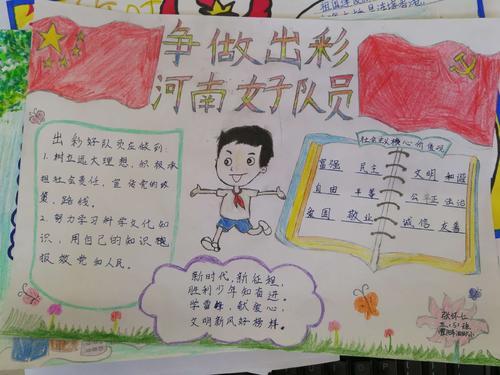 争做出彩
河南好队员
出彩好队员应做到:
1.树立远大理想,积极承
担社会责任,宣传党的政
策,路线。
2.努力学习科学文化知
识,用自己的知识
报效党和人民。
社会主义核心价值观
富强 民主 文明 和谐
自由 平等 公平正 法治
爱国 敬业 诚信 友善
新时代,新征程,
胜利少年知奋进。
学雷锋,献爱心,
文明新风好榜样。